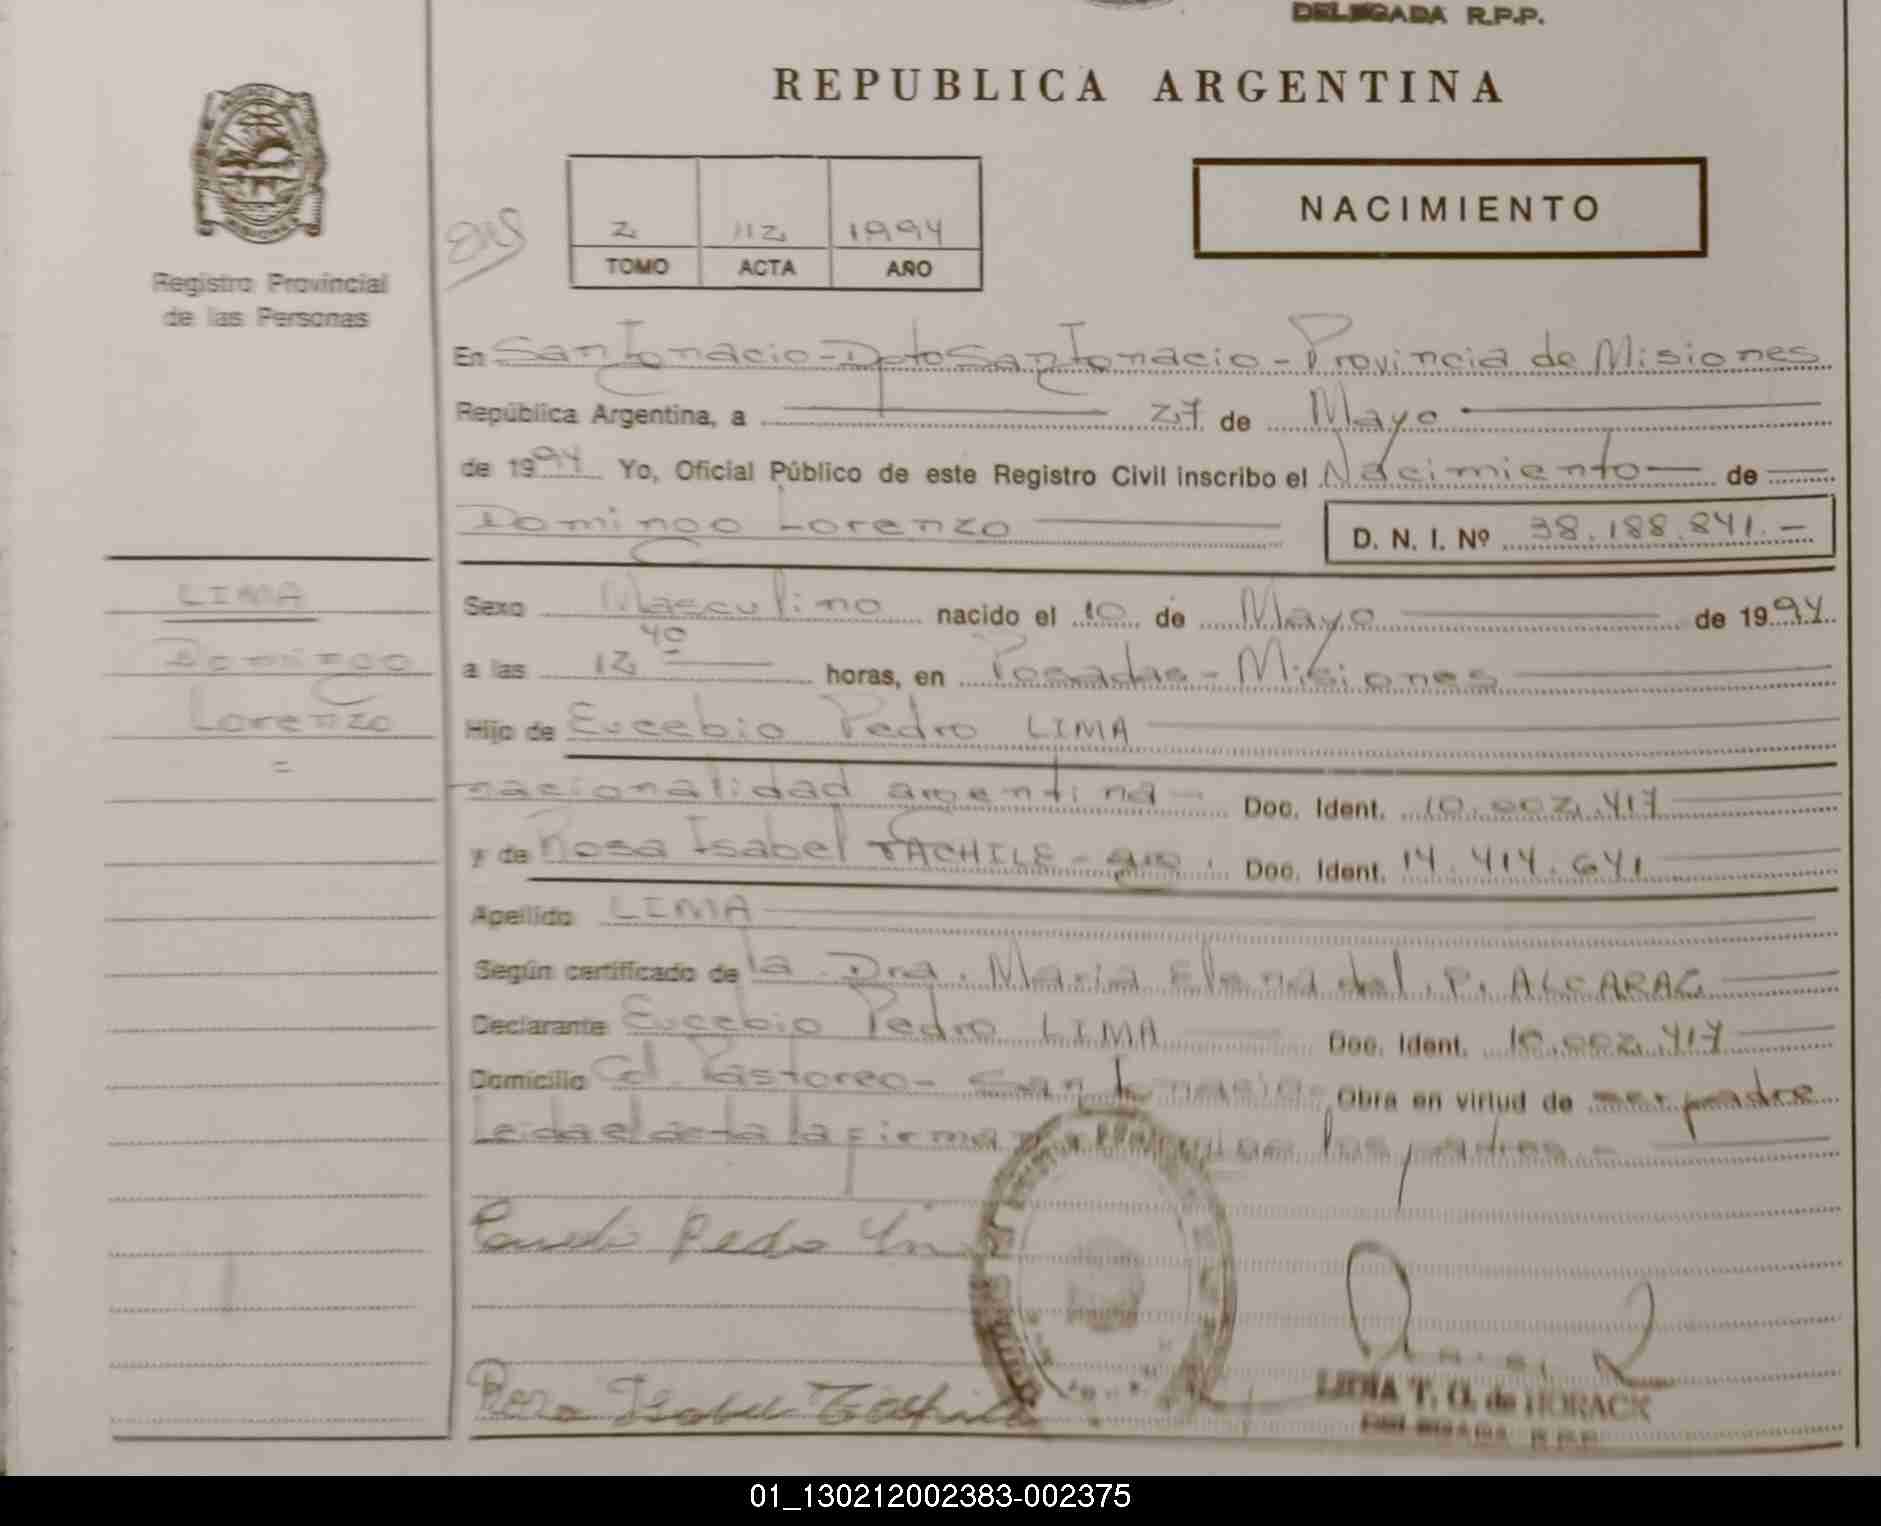 DELEGADA R.P.P.
REPUBLICA ARGENTINA
Registro Provincial
de las Personas
2 112 1994
TOMO ACTA AÑO
NACIMIENTO
En San Ignacio - Dpto San Ignacio - Provincia de Misiones
República Argentina, a 27 de Mayo
de 1994 Yo, Oficial Público de este Registro Civil inscribo el Nacimiento de
Domingo Lorenzo D. N. I. Nº 38.188.841.-
LIMA
Domingo
Lorenzo
=
Sexo Masculino nacido el 10 de Mayo de 1994
a las 12 40 horas, en Posadas - Misiones
Hijo de Eucebio Pedro LIMA
nacionalidad argentina - Doc. Ident. 10.002.417
y de Rosa Isabel TACHILE - Doc. Ident. 14.414.641
Apellido LIMA
Según certificado de la Dra. Maria Elena del P. ALCARAZ
Declarante Eucebio Pedro LIMA Doc. Ident. 10.002.417
Domicilio Col. Pastoreo - San Ignacio Obra en virtud de ser padre
Leida el acta la firma los padres -
Pedro
Rosa Isabel
LIDIA T. G. de HORACK
DELEGADA R.P.P.
01_130212002383-002375